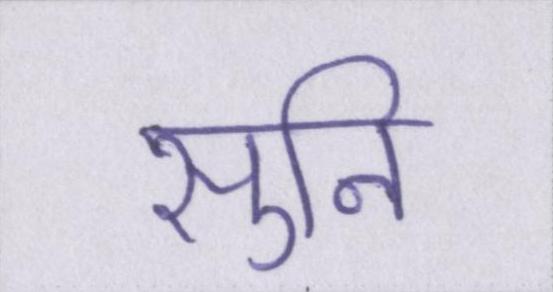 सुनि